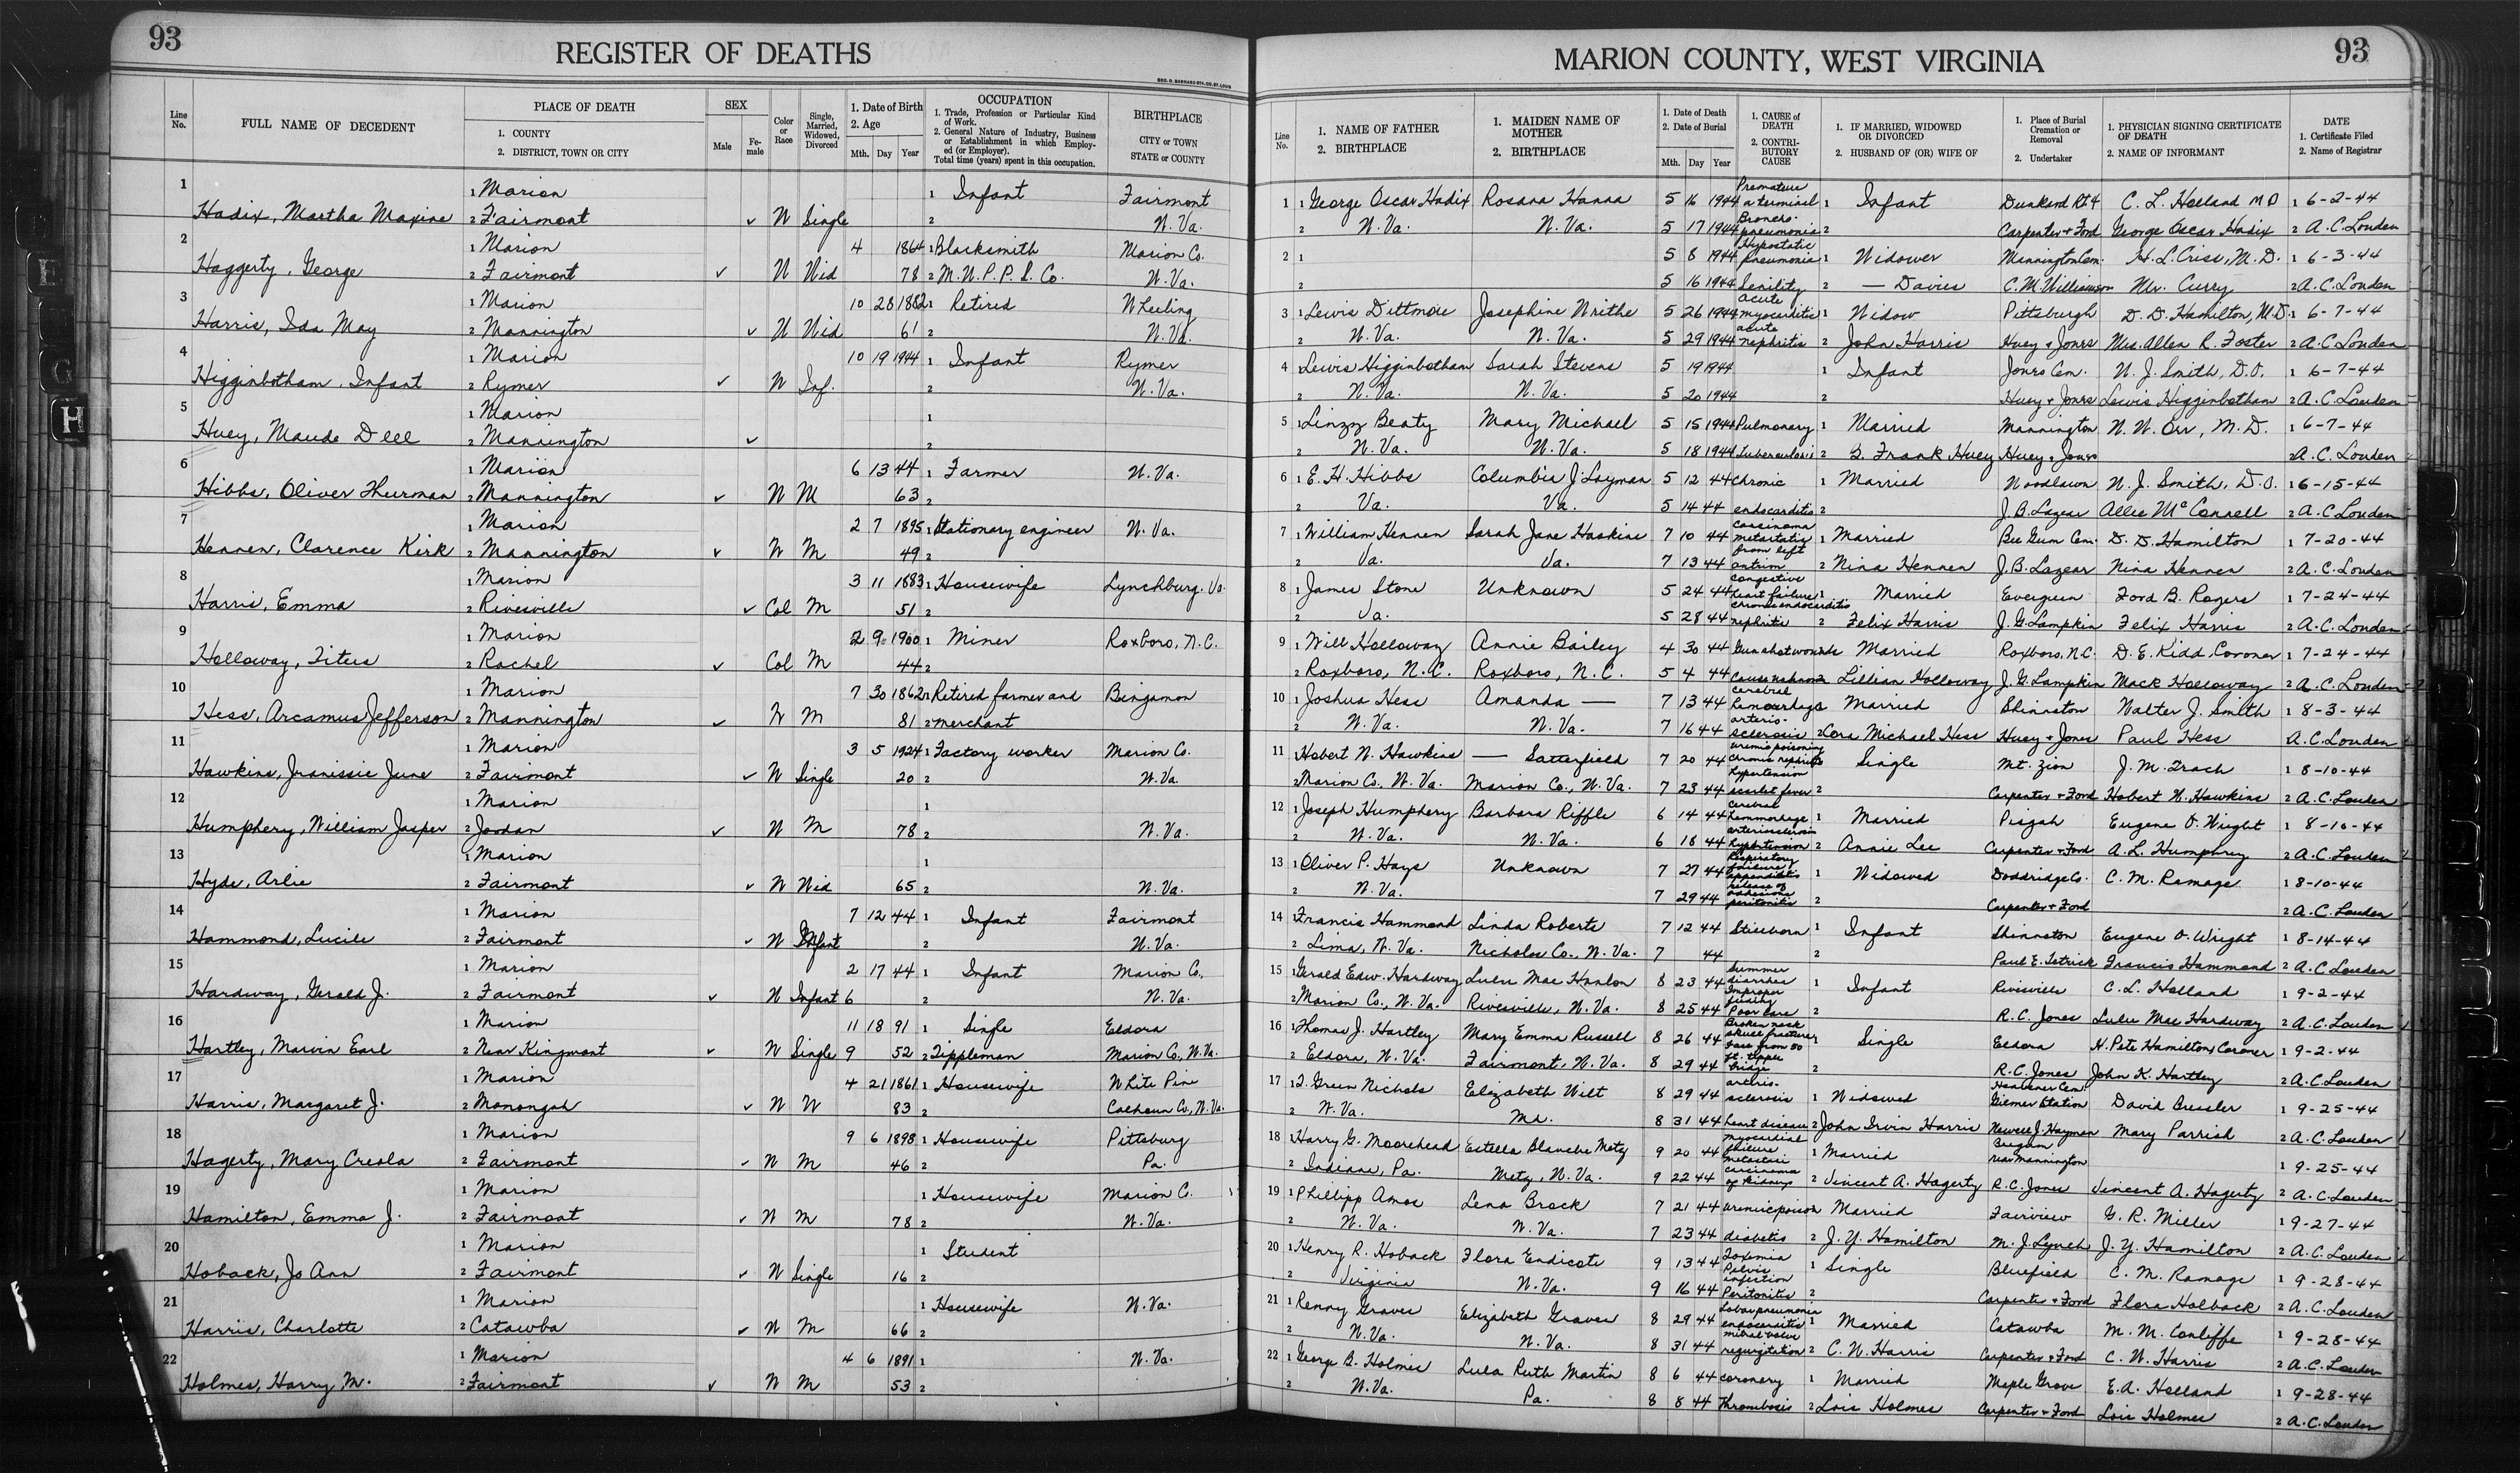 93
REGISTER OF DEATHS
GEO. D. BARNARD STA. CO. ST. LOUIS
Line No.
FULL NAME OF DECEDENT
PLACE OF DEATH
1. COUNTY
2. DISTRICT, TOWN OR CITY
SEX
Male
Fe-male
Color or Race
Single, Married, Widowed, Divorced
1. Date of Birth
2. Age
Mth. Day Year
OCCUPATION
1. Trade, Profession or Particular Kind of Work.
2. General Nature of Industry, Business or Establishment in which Employ-ed (or Employer).
Total time (years) spent in this occupation.
BIRTHPLACE
CITY or TOWN
STATE or COUNTY
1 1 Marion 1 Infant Fairmont
Hadix, Martha Maxine 2 Fairmont ✓ W Single 2 W. Va.
2 1 Marion 4 1864 1 Blacksmith Marion Co.
Haggerty, George 2 Fairmont ✓ W Wid 78 2 M. W. P. P. S. Co. W. Va.
3 1 Marion 10 28 1882 1 Retired Wheeling
Harris, Ida May 2 Mannington ✓ W Wid 61 2 W. Va.
4 1 Marion 10 19 1944 1 Infant Rymer
Higginbotham, Infant 2 Rymer ✓ W Inf. 2 W. Va.
5 1 Marion 1
Huey, Maude Dell 2 Mannington ✓ 2
6 1 Marion 6 13 44 1 Farmer W. Va.
Hibbs, Oliver Thurman 2 Mannington ✓ W M 63 2
7 1 Marion 2 7 1895 1 Stationary engineer W. Va.
Hennen, Clarence Kirk 2 Mannington ✓ W M 49 2
8 1 Marion 3 11 1883 1 Housewife Lynchburg, Va.
Harris, Emma 2 Rivesville ✓ Col M 51 2
9 1 Marion 2 9 1900 1 Miner Roxboro, N.C.
Holloway, Titus 2 Rachel ✓ Col M 44 2
10 1 Marion 7 30 1862 1 Retired farmer and Bingamon
Hess, Arcamus Jefferson 2 Mannington ✓ W M 81 2 merchant
11 1 Marion 3 5 1924 1 Factory worker Marion Co.
Hawkins, June 2 Fairmont ✓ W Single 20 2 W. Va.
12 1 Marion 1
Humphery, William Jasper 2 Jordan ✓ W M 78 2 W. Va.
13 1 Marion 1
Hyde, Arlie 2 Fairmont ✓ W Wid 65 2 W. Va.
14 1 Marion 7 12 44 1 Infant Fairmont
Hammond, Lucile 2 Fairmont ✓ W Infant 2 W. Va.
15 1 Marion 2 17 44 1 Infant Marion Co.,
Hardway, Gerald J. 2 Fairmont ✓ W Infant 6 2 W. Va.
16 1 Marion 11 18 91 1 Single Eldora
Hartley, Marvin Earl 2 Near Kingmont ✓ W Single 9 52 2 Tippleman Marion Co., W. Va.
17 1 Marion 4 21 1861 1 Housewife White Pine
Harris, Margaret J. 2 Monongah ✓ W W 83 2 Calhoun Co., W. Va.
18 1 Marion 9 6 1898 1 Housewife Pittsburg
Hagerty, Mary Creola 2 Fairmont ✓ W M 46 2 Pa.
19 1 Marion 1 Housewife Marion Co.
Hamilton, Emma J. 2 Fairmont ✓ W M 78 2 W. Va.
20 1 Marion 1 Student
Hoback, Jo Ann 2 Fairmont ✓ W Single 16 2
21 1 Marion 1 Housewife W. Va.
Harris, Charlotte 2 Catawba ✓ W M 66 2
22 1 Marion 4 6 1891 1 W. Va.
Holmes, Harry M. 2 Fairmont ✓ W M 53 2
MARION COUNTY, WEST VIRGINIA
93
Line No.
1. NAME OF FATHER
2. BIRTHPLACE
1. MAIDEN NAME OF MOTHER
2. BIRTHPLACE
1. Date of Death
2. Date of Burial
Mth. Day Year
1. CAUSE of DEATH
2. CONTRI-BUTORY CAUSE
1. IF MARRIED, WIDOWED OR DIVORCED
2. HUSBAND OF (OR) WIFE OF
1. Place of Burial Cremation or Removal
2. Undertaker
1. PHYSICIAN SIGNING CERTIFICATE OF DEATH
2. NAME OF INFORMANT
DATE
1. Certificate Filed
2. Name of Registrar
1 1 George Oscar Hadix Rosana Hanna 5 16 1944 Premature a terminal 1 Infant Dunkard Rt 4 C. L. Holland MD 1 6-2-44
2 W. Va. W. Va. 5 17 1944 Broncho-pneumonia 2 Carpenter & Ford George Oscar Hadix 2 A. C. Louden
2 1 5 8 1944 Hypostatic pneumonia 1 Widower Mannington Cem. H. L. Criss, M. D. 1 6-3-44
2 5 16 1944 Senility 2 — Davies C. M. Williamson Mr. Curry 2 A. C. Louden
3 1 Lewis Dittmore Josephine Writhe 5 26 1944 acute myocarditis 1 Widow Pittsburgh D. D. Hamilton, M.D. 1 6-7-44
2 W. Va. W. Va. 5 29 1944 acute nephritis 2 John Harris Huey & Jones Mrs. Allen R. Foster 2 A. C. Louden
4 1 Lewis Higginbotham Sarah Stevens 5 19 1944 1 Infant Jones Cem. W. J. Smith, D.O. 1 6-7-44
2 W. Va. W. Va. 5 20 1944 2 Huey & Jones Lewis Higginbotham 2 A. C. Louden
5 1 Linzy Beaty Mary Michael 5 15 1944 Pulmonary 1 Married Mannington W. W. Orr, M. D. 1 6-7-44
2 W. Va. W. Va. 5 18 1944 Tuberculosis 2 B. Frank Huey Huey & Jones 2 A. C. Louden
6 1 E. H. Hibbs Columbia J. Layman 5 12 44 Chronic 1 Married Woodlawn W. J. Smith, D.O. 1 6-15-44
2 Va. Va. 5 14 44 endocarditis 2 J. B. Lazear Allie McConnell 2 A. C. Louden
7 1 William Hennen Sarah Jane Haskins 7 10 44 Carcinoma metastatic 1 Married Bee Gum Cem. D. D. Hamilton 1 7-20-44
2 Va. Va. 7 13 44 from left antrim 2 Nina Hennen J. B. Lazear Nina Hennen 2 A. C. Louden
8 1 James Stone Unknown 5 24 44 Congestive heart failure 1 Married Evergreen Ford B. Rogers 1 7-24-44
2 Va. 5 28 44 chronic endocarditis nephritis 2 Felix Harris J. G. Lampkin Felix Harris 2 A. C. Louden
9 1 Will Holloway Annie Bailey 4 30 44 Gun shot wounds Married Roxboro, N.C. D. E. Kidd, Coroner 1 7-24-44
2 Roxboro, N. C. Roxboro, N. C. 5 4 44 Cause unknown 2 Lillian Holloway J. G. Lampkin Mack Holloway 2 A. C. Louden
10 1 Joshua Hess Amanda — 7 13 44 Cerebral hemorrhage Married Shinnston Walter J. Smith 1 8-3-44
2 W. Va. W. Va. 7 16 44 arterio-sclerosis 2 Cora Michael Hess Huey & Jones Paul Hess A. C. Louden
11 Hobert W. Hawkins — Satterfield 7 20 44 uremic poisoning chronic nephritis Single Mt. Zion J. M. Trach 1 8-10-44
2 Marion Co., W. Va. Marion Co., W. Va. 7 23 44 hypertension scarlet fever 2 Carpenter & Ford Hobert W. Hawkins 2 A. C. Louden
12 1 Joseph Humphery Barbara Riffle 6 14 44 Cerebral hemmorhage 1 Married Pisgah Eugene O. Wright 1 8-10-44
2 W. Va. W. Va. 6 18 44 arteriosclerosis hypertension 2 Annie Lee Carpenter & Ford A. L. Humphrey 2 A. C. Louden
13 1 Oliver P. Hays Unknown 7 27 44 Respiratory appendicitis 1 Widowed Doddridge Co. C. M. Ramage 1 8-10-44
2 W. Va. 7 29 44 release of adhesions peritonitis 2 Carpenter & Ford 2 A. C. Louden
14 1 Francis Hammond Linda Roberts 7 12 44 Stillborn 1 Infant Shinnston Eugene O. Wright 1 8-14-44
2 Lima, W. Va. Nicholas Co., W. Va. 7 44 2 Paul E. Tetrick Francis Hammond 2 A. C. Louden
15 1 Gerald Edw. Hardway Lulu Mae Hanlon 8 23 44 Summer diarrhea 1 Infant Rivesville C. L. Holland 1 9-2-44
2 Marion Co., W. Va. Rivesville, W. Va. 8 25 44 Improper feeding Poor care 2 R. C. Jones Lulu Mae Hardway 2 A. C. Louden
16 1 Thomas J. Hartley Mary Emma Russell 8 26 44 Broken neck skull fracture 1 Single Eldora H. Pete Hamilton, Coroner 1 9-2-44
2 Eldora, W. Va. Fairmont, W. Va. 8 29 44 from 50 ft. tipple bridge 2 R. C. Jones John K. Hartley 2 A. C. Louden
17 1 T. Green Nichols Elizabeth Wilt 8 29 44 arterio-sclerosis 1 Widowed Cem. Gilmer Station David Bressler 1 9-25-44
2 W. Va. Md. 8 31 44 heart disease 2 John Irvin Harris Newell J. Hayman Mary Parrish 2 A. C. Louden
18 1 Harry G. Moorehead Estella Blanche Metz 9 20 44 myocardial failure 1 Married near Mannington 1 9-25-44
2 Indiana, Pa. Metz, W. Va. 9 22 44 carcinoma of kidneys 2 Vincent A. Hagerty R. C. Jones Vincent A. Hagerty 2 A. C. Louden
19 1 Phillipp Amos Lena Brock 7 21 44 uremic poison Married Fairview G. R. Miller 1 9-27-44
2 W. Va. W. Va. 7 23 44 diabetis 2 J. Y. Hamilton M. J. Lynch J. Y. Hamilton 2 A. C. Louden
20 1 Henry R. Hoback Flora Endicote 9 13 44 Toxemia Pelvic 1 Single Bluefield C. M. Ramage 1 9-28-44
2 Virginia W. Va. 9 16 44 infection Peritonitis 2 Carpenter & Ford Flora Holback 2 A. C. Louden
21 1 Renny Graves Elizabeth Graves 8 29 44 Lobar pneumonia endocarditis 1 Married Catawba M. M. Conliffe 1 9-28-44
2 W. Va. W. Va. 8 31 44 mitral valve regurgitation 2 C. W. Harris Carpenter & Ford C. W. Harris 2 A. C. Louden
22 1 George B. Holmes Lula Ruth Martin 8 6 44 coronary 1 Married Maple Grove E. A. Holland 1 9-28-44
2 W. Va. Pa. 8 8 44 Thrombosis 2 Lois Holmes Carpenter & Ford Lois Holmes 2 A. C. Louden
E
G
H